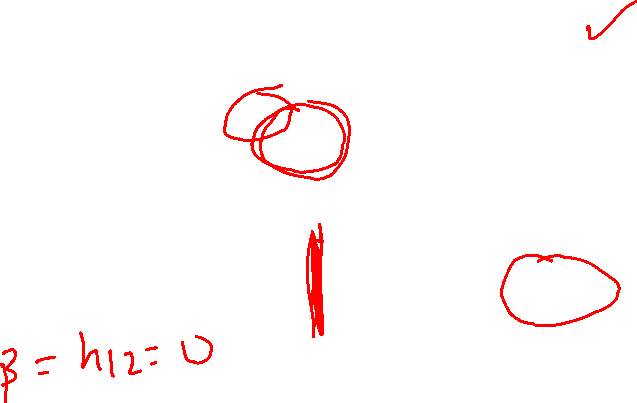 β = h12 = 0